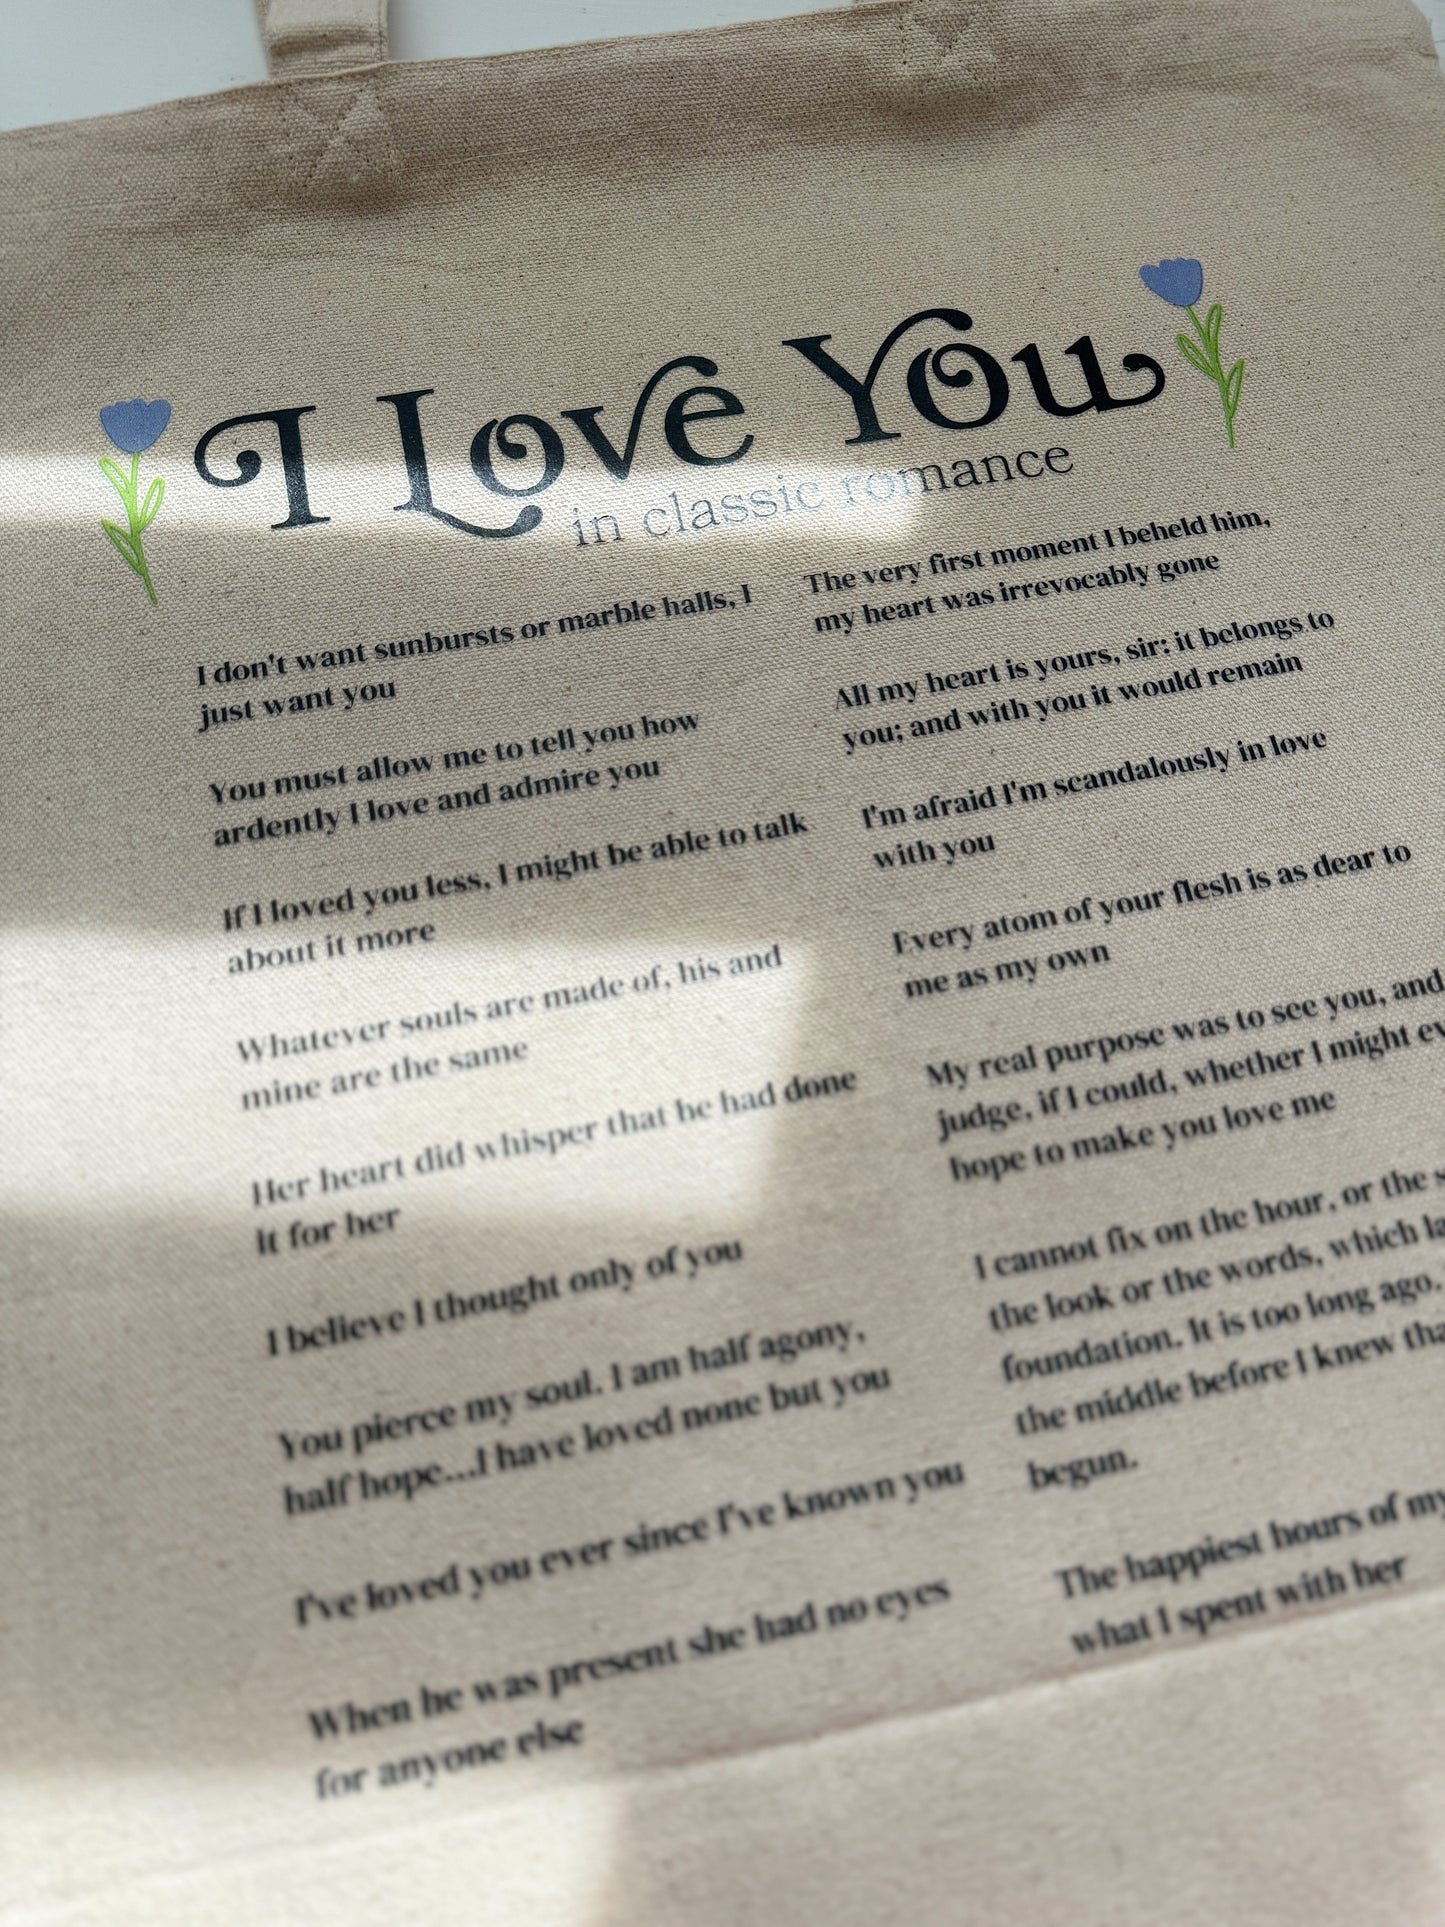 I Love You
in classic romance
I don't want sunbursts or marble halls, I
just want you
You must allow me to tell you how
ardently I love and admire you
If I loved you less, I might be able to talk
about it more
Whatever souls are made of, his and
mine are the same
Her heart did whisper that he had done
it for her
I believe I thought only of you
You pierce my soul. I am half agony,
half hope...I have loved none but you
I've loved you ever since I've known you
When he was present she had no eyes
for anyone else
The very first moment I beheld him,
my heart was irrevocably gone
All my heart is yours, sir: it belongs to
you; and with you it would remain
I'm afraid I'm scandalously in love
with you
Every atom of your flesh is as dear to
me as my own
My real purpose was to see you, and
judge, if I could, whether I might
hope to make you love me
I cannot fix on the hour, or the
the look or the words, which
foundation. It is too long ago.
the middle before I knew
begun.
The happiest hours of my
what I spent with her